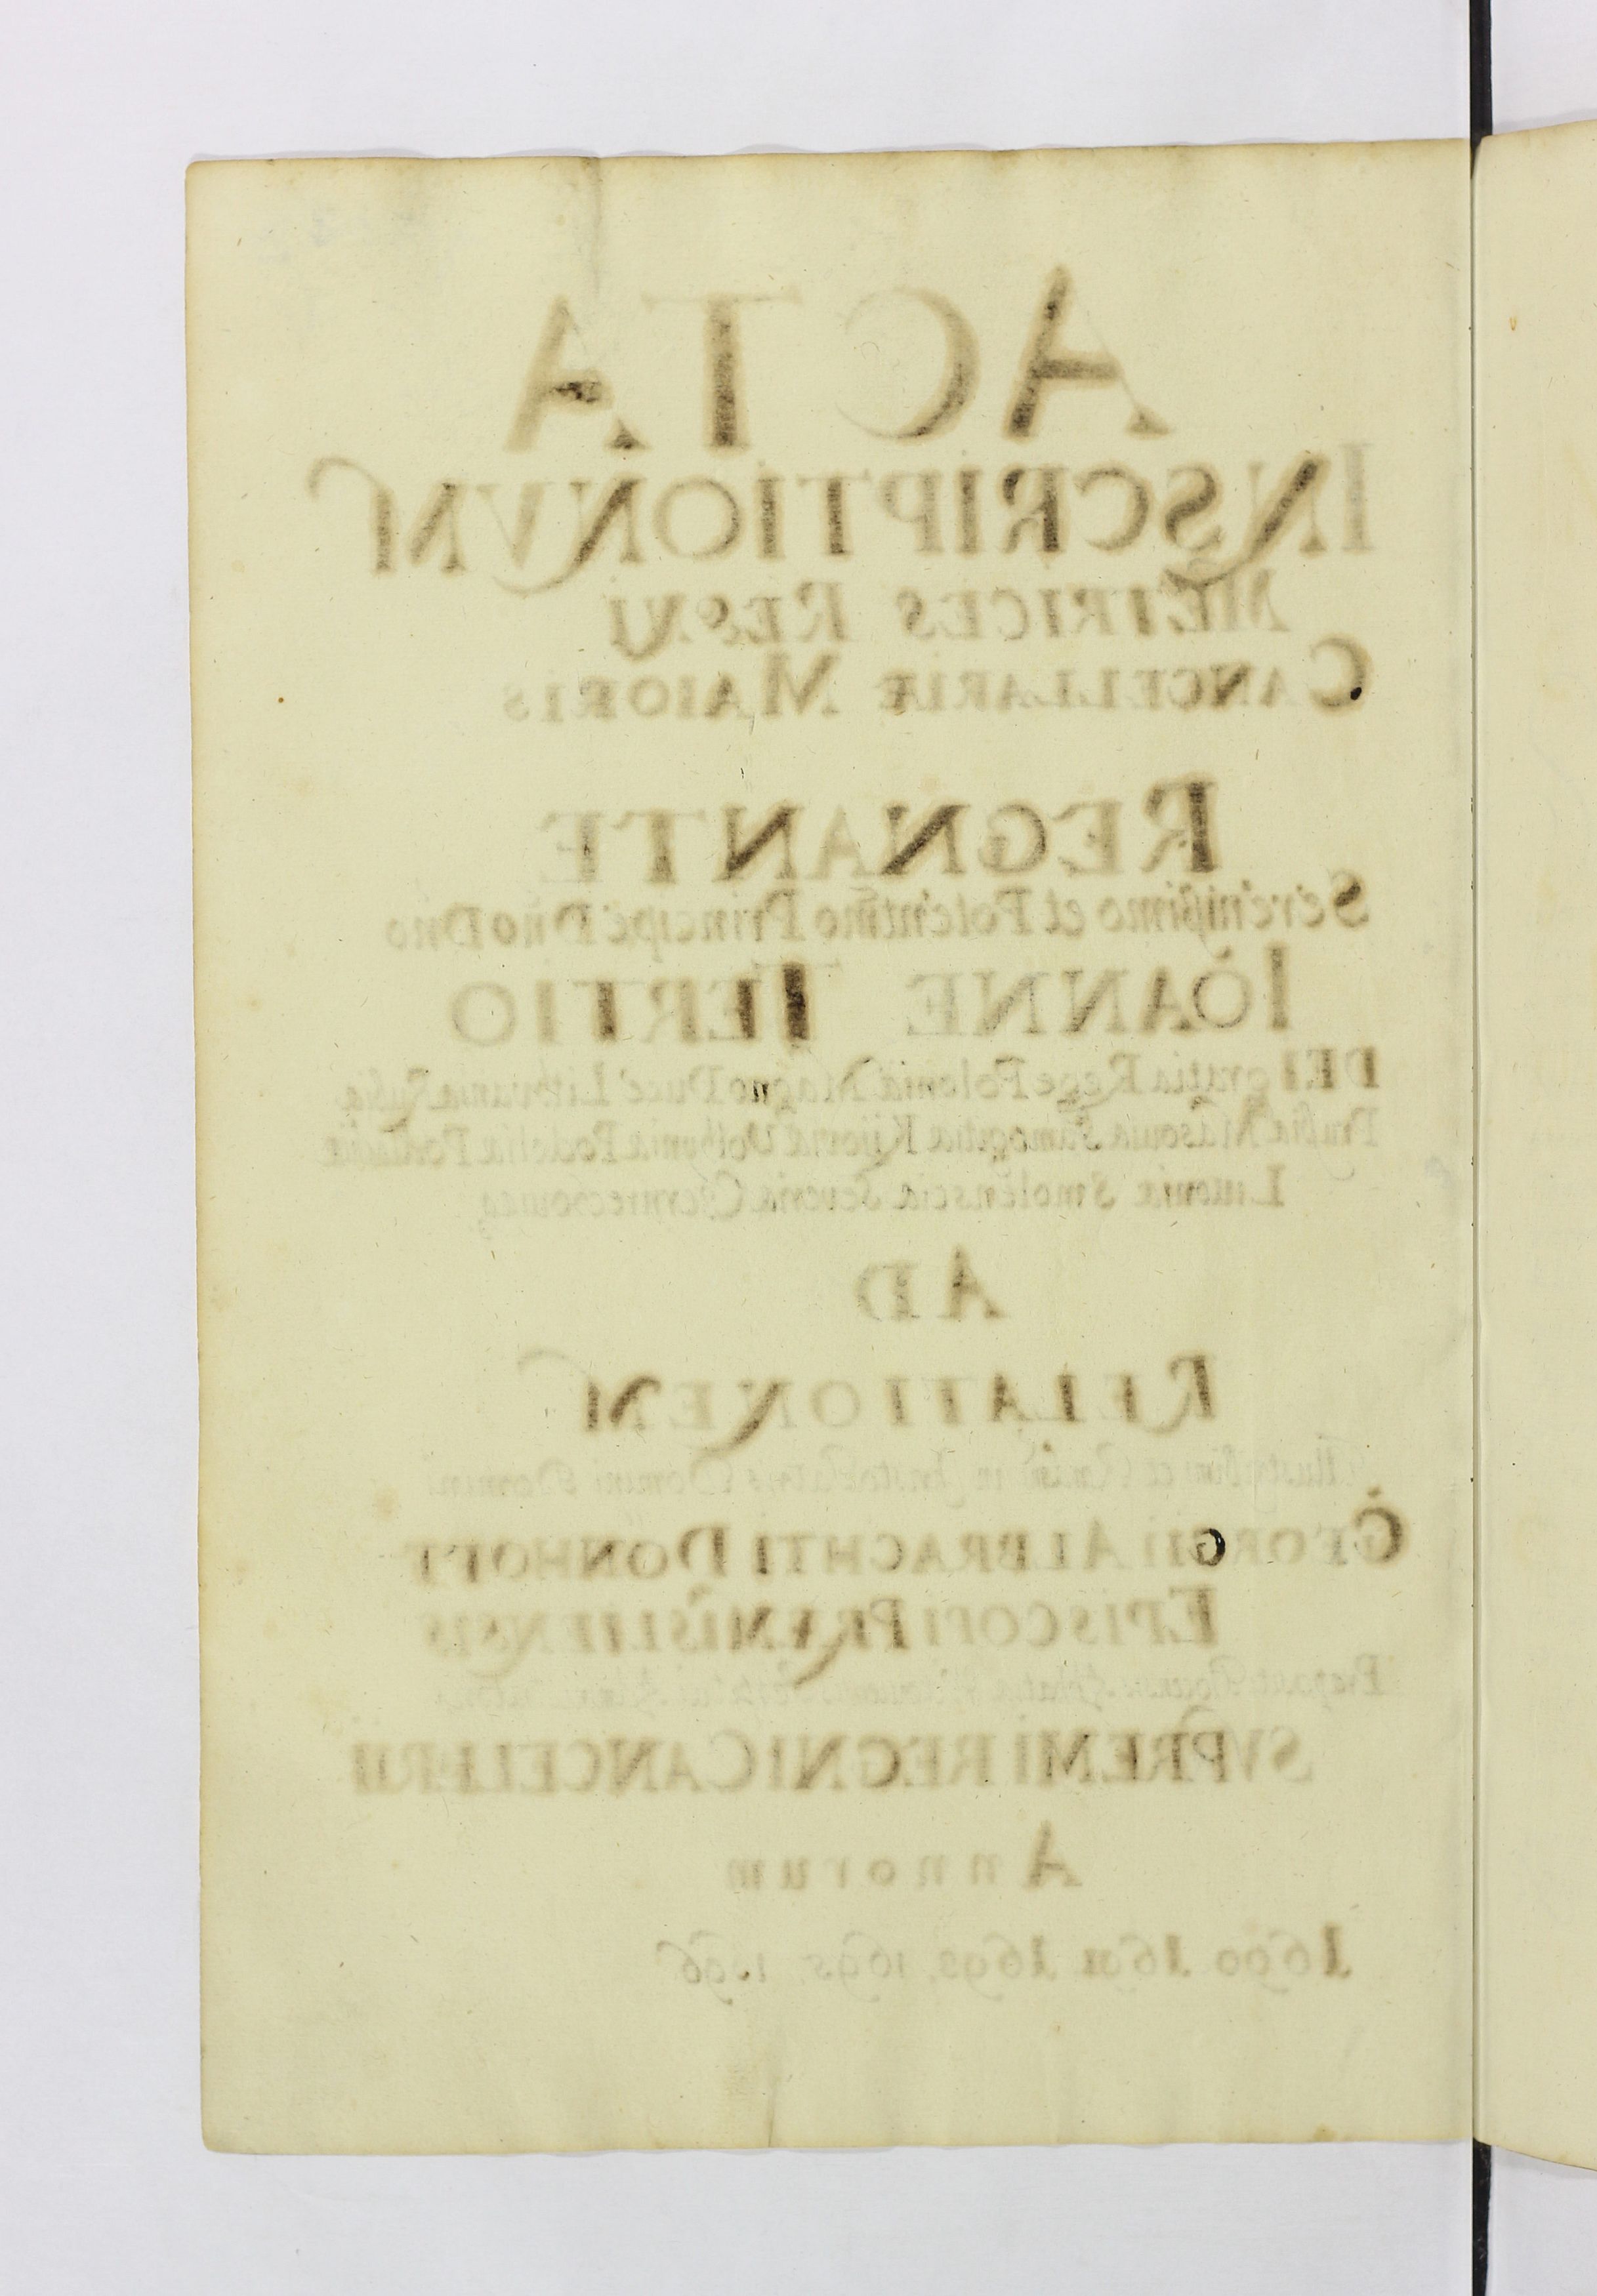 ACTA
INSCRIPTIONVM
METRICES REGNI
CANCELLARIÆ MAIORIS
REGNANTE
Serenißimo et Potentmo Principe Dño Dño
IOANNE TERTIO
DEI gratia Rege Poloniæ Magno Duce Lithvaniæ Rußiæ
Prußiæ Masouiæ Samogitiæ Kijoviæ Volhyniæ Podoliæ Podlachiæ
Liuoniæ Smolensciæ Severiæ Czerniechouiæq
AD
RELATIONEM
Illustrißimi et Rndmi in Christo Patris Domini Domini
GEORGII ALBRACHTI DÖNHOFF
EPISCOPI PRÆMISLIENSIS
SVPREMI REGNI CANCELLARII
Annorum
1690 1691 1695. 1696